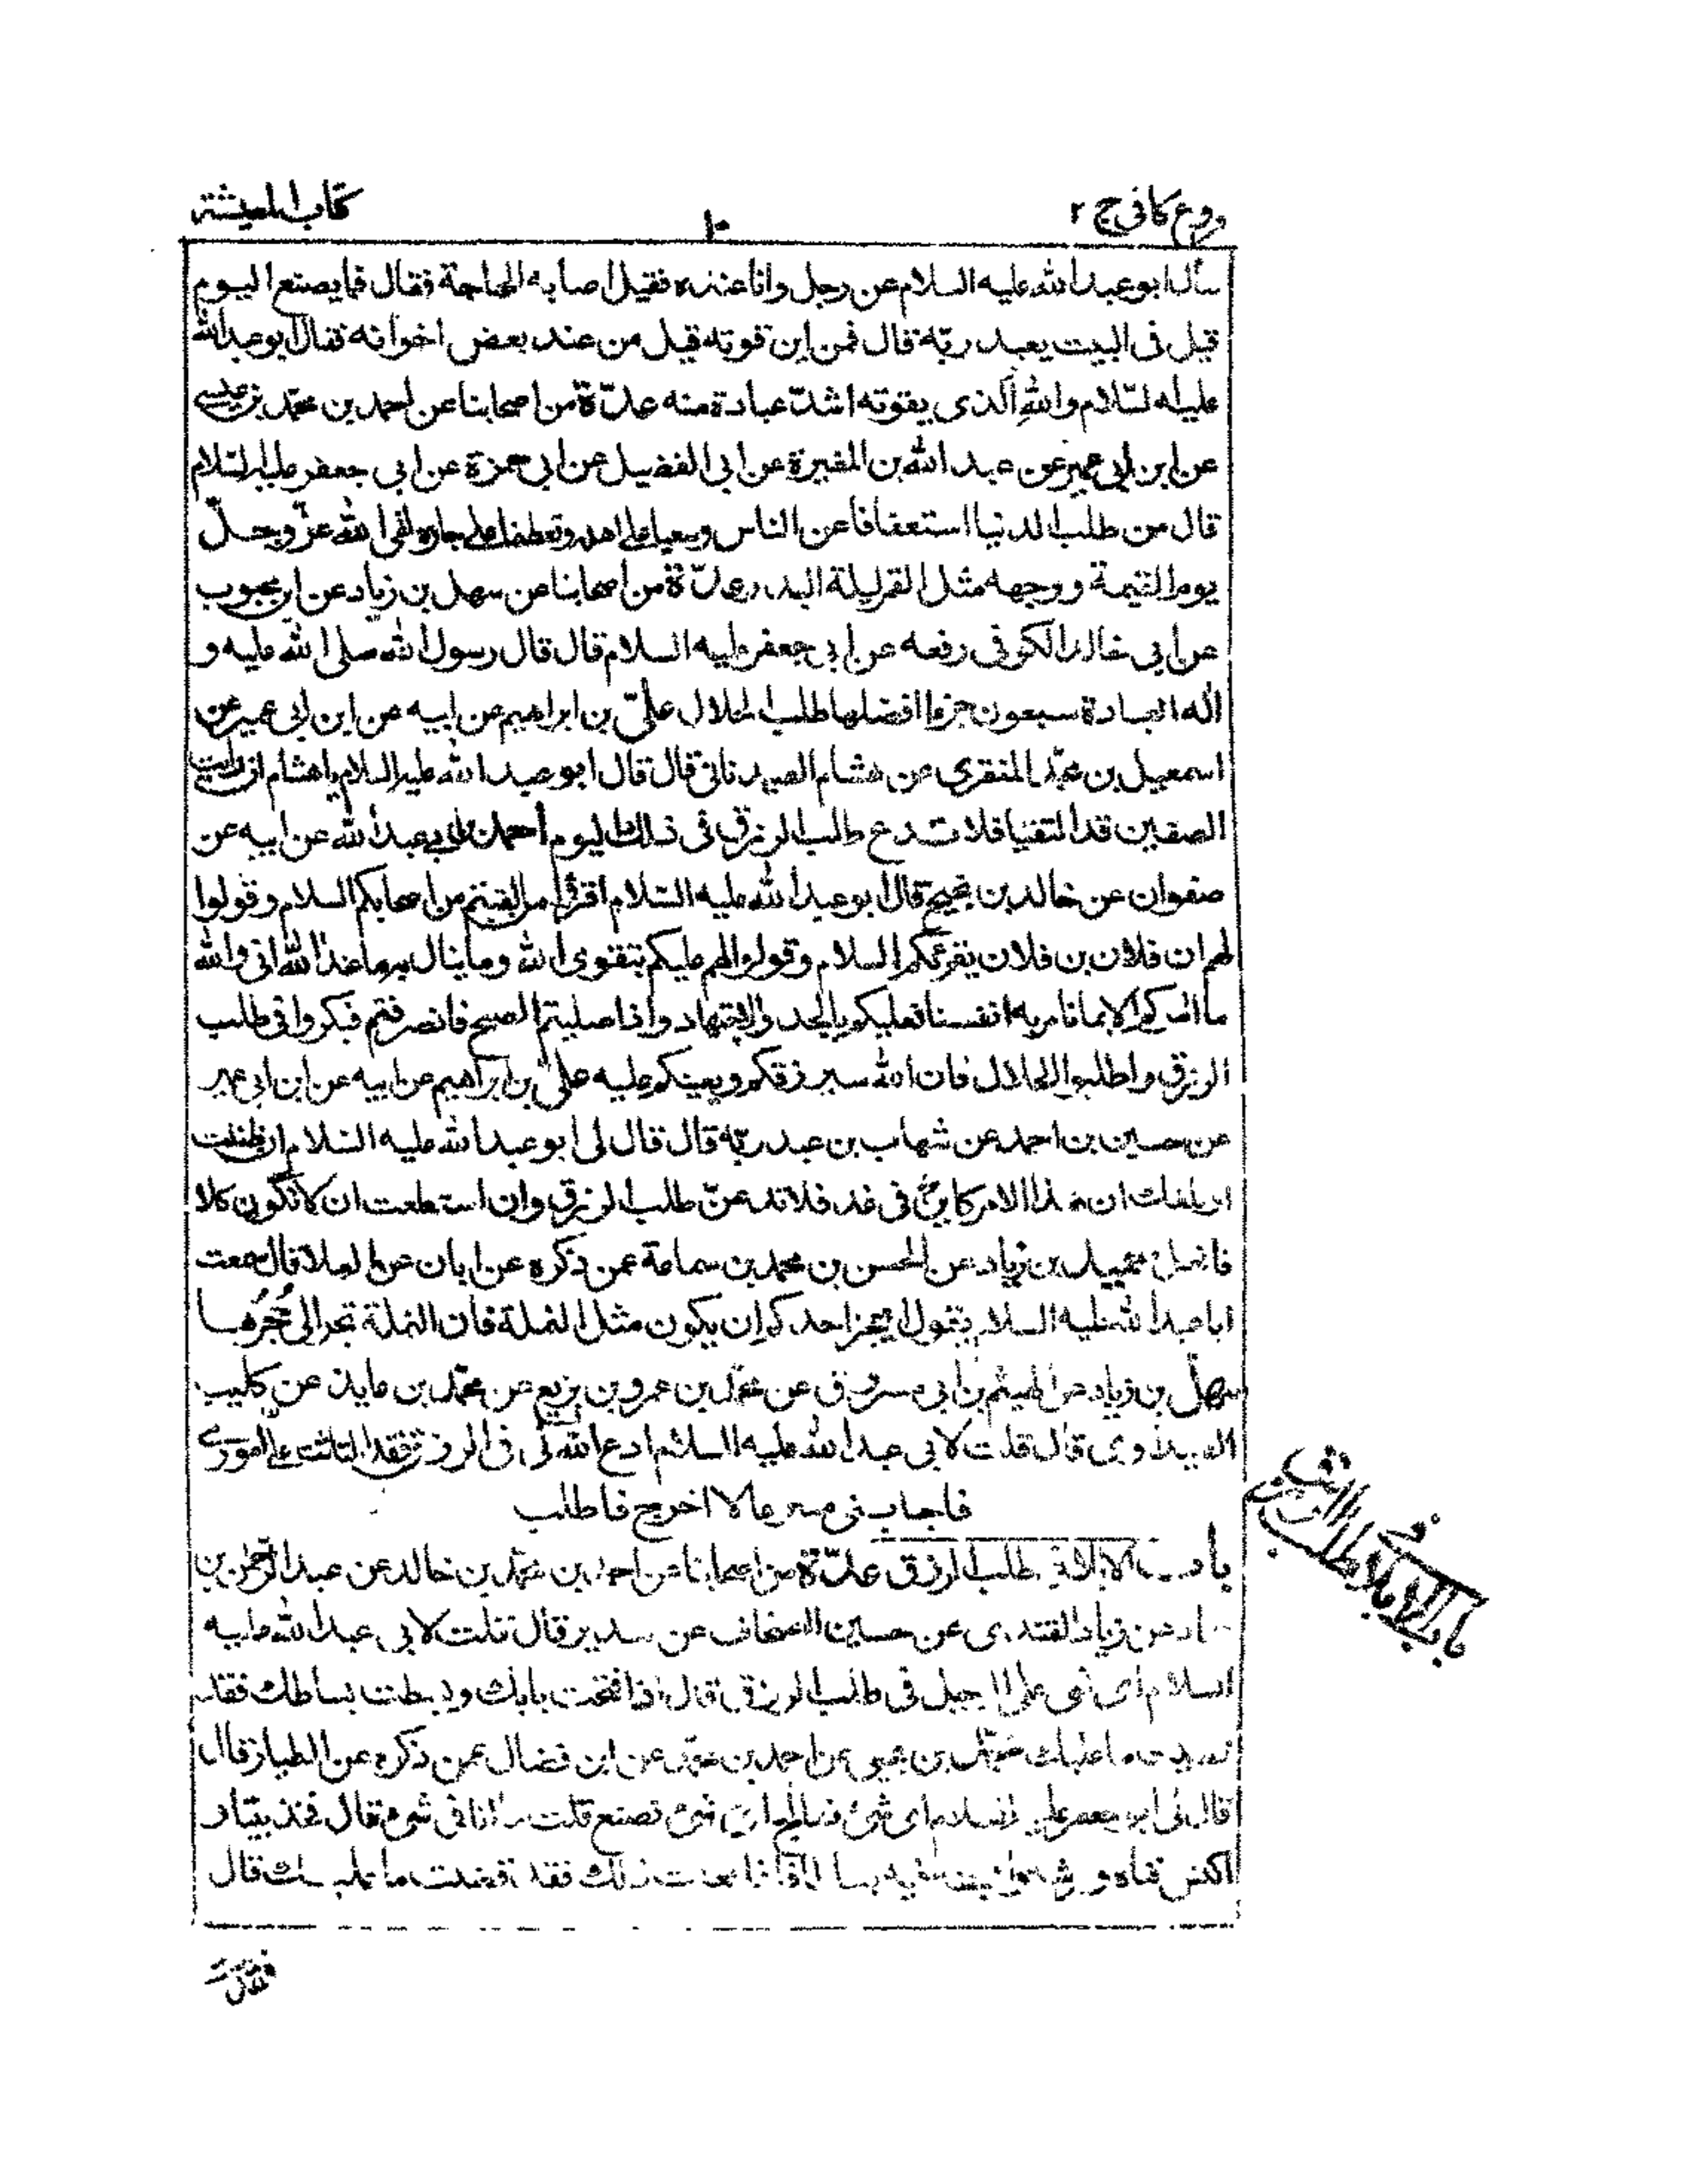 فروع كافى ج ٢
١٠
كتاب المعيشة
سأل ابو عبد الله عليه السلام عن رجل وانا عنده فقيل اصابه الحاجة فقال فما يصنع اليوم
قيل فى البيت يعبد ربّه قال فمن اين قوته قيل من عند بعض اخوانه فقال ابو عبد الله
عليه السّلام والله الّذى يقوته اشدّ عبادة منه عدّة من اصحابنا عن احمد بن محمّد بن عيسى
عن ابن ابى عمير عن عبد الله بن المغيرة عن ابى الفضيل عن ابى حمزة عن ابى جعفر عليه السّلام
قال من طلب الدنيا استعفافا عن الناس وسعيا على اهله وتعطفا على جاره لقى الله عزّ وجلّ
يوم القيمة ووجهه مثل القمر ليلة البدر عدّة من اصحابنا عن سهل بن زياد عن ابن محبوب
عن ابى خالد الكوفى رفعه عن ابى جعفر عليه السلام قال قال رسول الله صلى الله عليه و
آله العبادة سبعون جزءا افضلها طلب الحلال علىّ بن ابراهيم عن ابيه عن ابن ابى عمير عن
اسمعيل بن محمّد المنقرى عن هشام الصيدنانى قال قال ابو عبد الله عليه السلام يا هشام ان رأيت
الصفين قد التقيا فلا تدع طلب الرزق فى ذلك اليوم احمد بن ابى عبد الله عن ابيه عن
صفوان عن خالد بن نجيح قال ابو عبد الله عليه السّلام اقرؤا من لقيتم من اصحابكم السلام وقولوا
لهم ان فلان بن فلان يقرئكم السلام وقولوا لهم عليكم بتقوى الله وما ينال به ما عند الله انى والله
ما آمركم الا بما نامر به انفسنا فعليكم بالجد والاجتهاد واذا صليتم الصبح فانصرفتم فبكروا فى طلب
الرزق واطلبوا الحلال فان الله سيرزقكم ويعينكم عليه علىّ بن ابراهيم عن ابيه عن ابن ابى عمير
عن حسين بن احمد عن شهاب بن عبد ربّه قال قال لى ابو عبد الله عليه السّلام ان ظننت
او بلغك ان هذا الامر كاين فى غد فلا تدعنّ طلب الرزق وان استطعت ان لا تكون كلا
فافعل حميد بن زياد عن الحسن بن محمد بن سماعة عمن ذكره عن ابان عن العلا قال سمعت
ابا عبد الله عليه السلام يقول ايعجز احدكم ان يكون مثل النملة فان النملة تجر الى حُجُرها
سهل بن زياد عن الهيثم بن ابى مسروق عن محمّد بن عمرو بن بزيع عن محمّد بن عايذ عن كليب
الصيداوى قال قلت لابى عبد الله عليه السلام ادع الله لى فى الرزق فقد التاثت علىّ امورى
فاجابنى مسرعا لا اخرج فاطلب
باب الابلاء فى طلب الرزق عدّة من اصحابنا عن احمد بن محمّد بن خالد عن عبد الرّحمن بن
حماد عن زياد القندى عن حسين الصحاف عن سدير قال قلت لابى عبد الله عليه
السلام اى شى على الرجل فى طلب الرزق فقال اذا فتحت بابك وبسطت بساطك فقد
قضيت ما عليك محمّد بن يحيى عن احمد بن محمّد عن ابن فضال عمن ذكره عن الطيار قال
قال لى ابو جعفر عليه السلام اى شئ تعالج اى شئ تصنع قلت ما انا فى شئ قال فخذ بيتا و
اكنس فناه ورشه وابسط فيه بساطا فاذا فعلت ذلك فقد قضيت ما عليك قال
فقدمت
باب الابلاء فى طلب الرزق